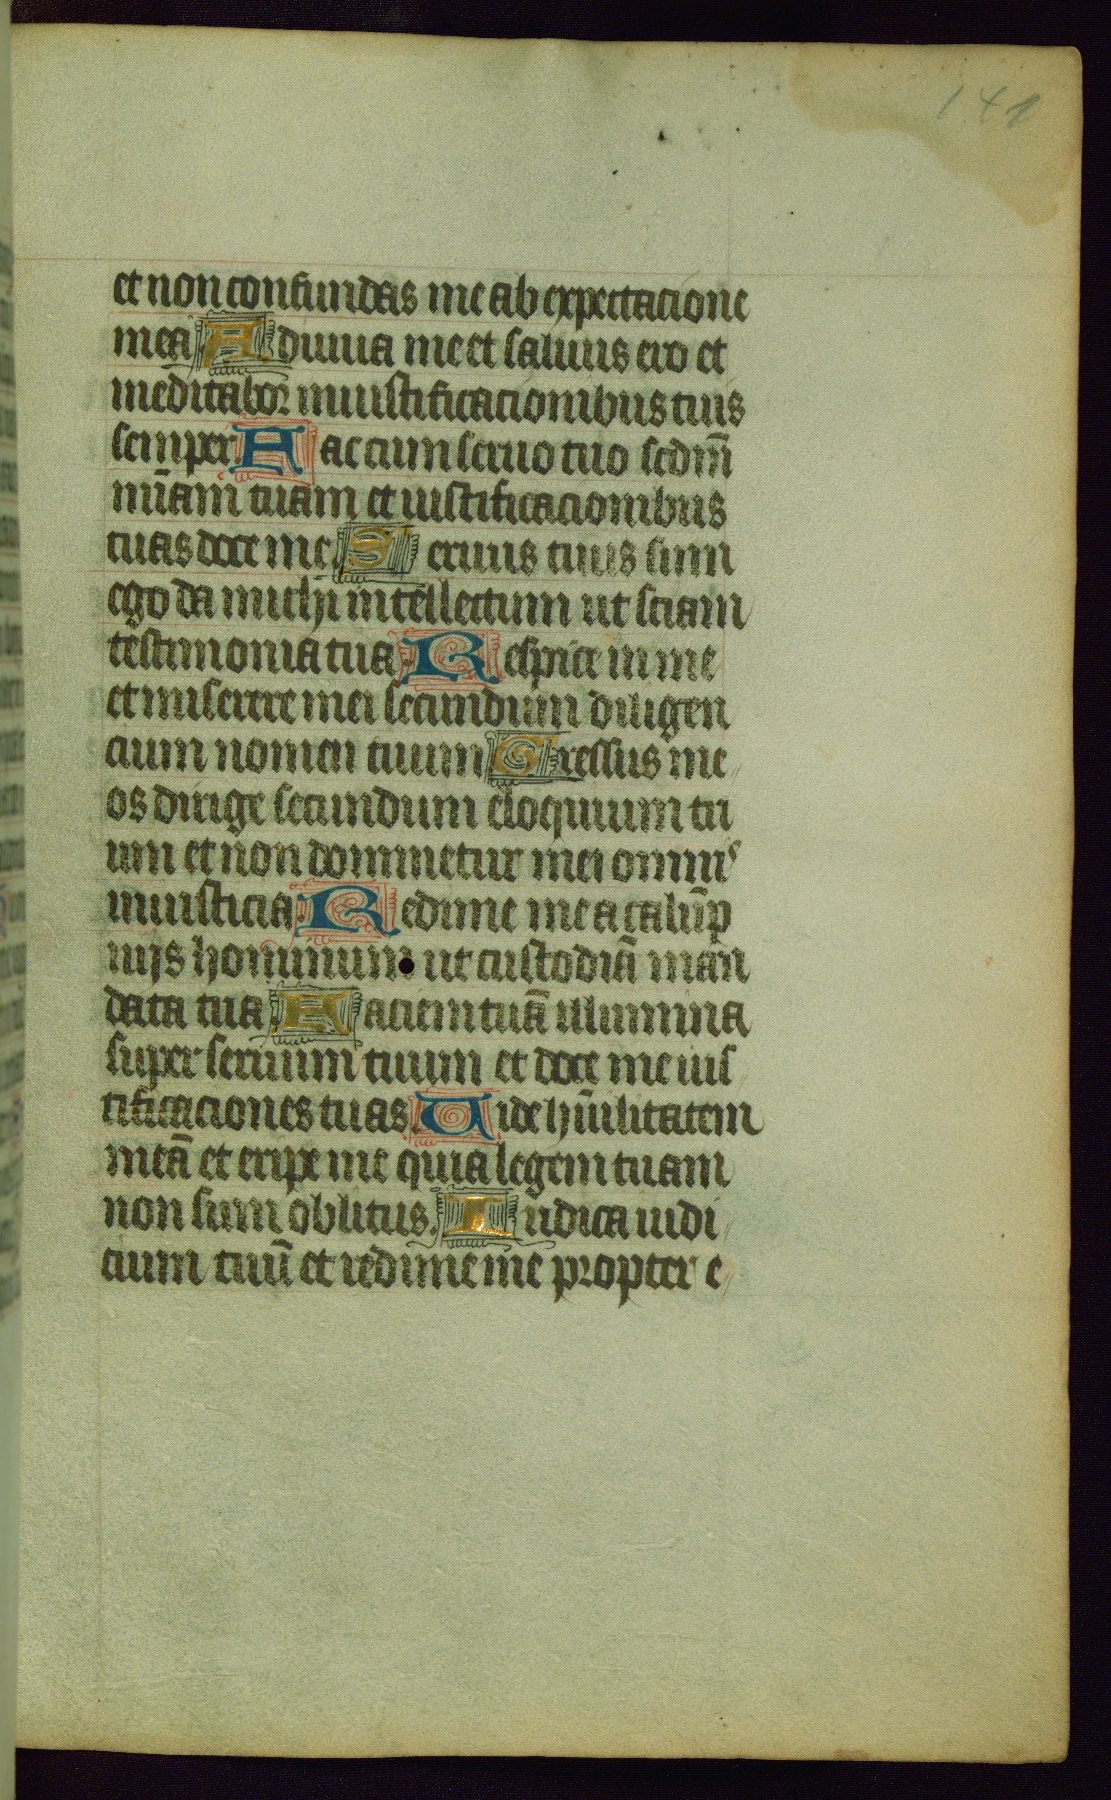 141
et non confundas me ab expectacione
mea Adiuua me et saluus ero et
meditabor in iustificacionibus tuis
semper Aac cum seruo tuo scdm̄
mīam tuam et iustificacionibus
tuas doce me Seruus tuus sum
ego da michi intellectum ut sciam
testimonia tua Respice in me
et miserere mei secundum diligen
cium nomen tuum Gressus me
os dirige secundum eloquium tu
um et non dominetur mei omnis
iniusticia Redime me a calūp
nijs hominum ut custodiā man
data tua Faciem tuā illumina
super seruum tuum et doce me ius
tificaciones tuas Uide hūilitatem
meā et eripe me quia legem tuam
non sum oblitus. Iudica iudi
cium tuū et redime me propter e